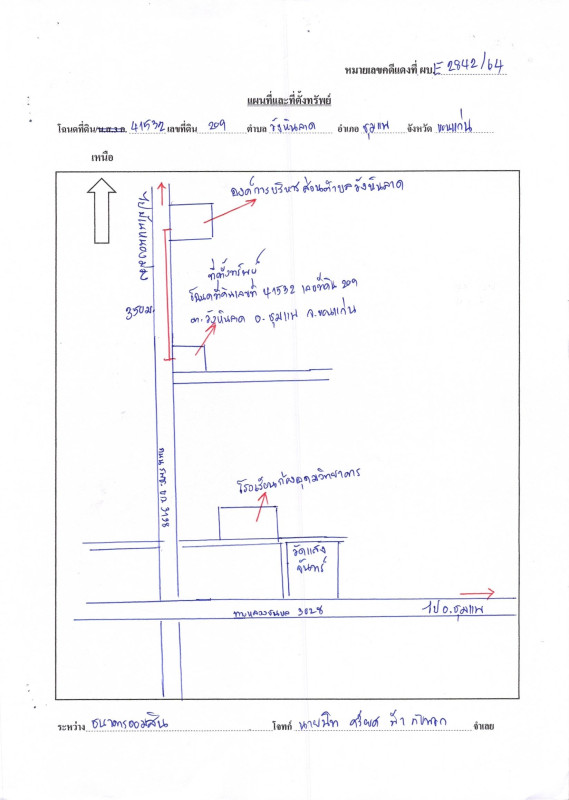 หมายเลขคดีแดงที่ ผบ.E 2842/64
แผนที่และที่ตั้งทรัพย์
โฉนดที่ดิน/น.ส.3 ก. 41532 เลขที่ดิน 209 ตำบล วังหินลาด อำเภอ ชุมแพ จังหวัด ขอนแก่น
เหนือ
องค์การบริหารส่วนตำบลวังหินลาด
350ม.
ที่ตั้งทรัพย์
โฉนดที่ดินเลขที่ 41532 เลขที่ดิน 209
ต.วังหินลาด อ.ชุมแพ จ.ขอนแก่น
ถนน รพช. ขก. 3198
โรงเรียนก้องอุดมวิทยาคาร
วัดแสง
จันทร์
ทางหลวงชนบท 3028
ไป อ.ชุมแพ
ระหว่าง ธนาคารออมสิน โจทก์ จำเลย